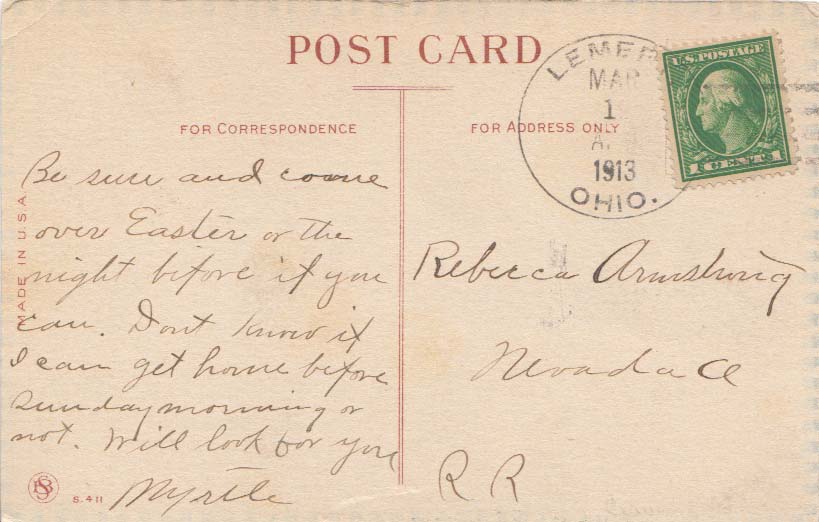 POST CARD
FOR CORRESPONDENCE
FOR ADDRESS ONLY
MADE IN U.S.A.
Be sure and come
over Easter or the
night before if you
can. Dont know if
I can get home before
sunday morning or
not. Will look for you
Myrtle
S.411
LEMER
MAR
1
A.
1913
OHIO.
U.S. POSTAGE
1 CENT 1
Rebecca Armstrong
Nevada O
R R